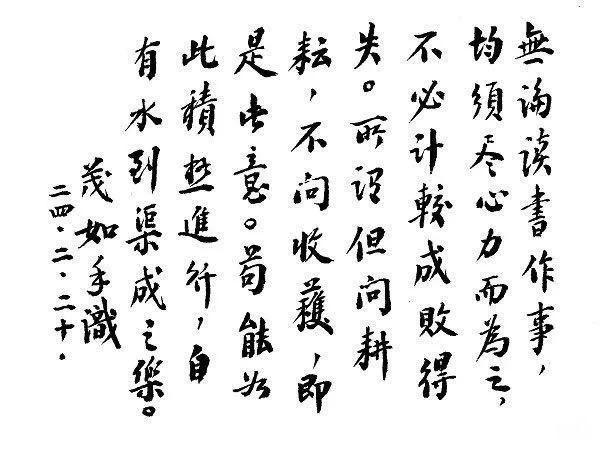 無論读書作事，
均須尽心力而為之，
不必计較成敗得
失。所谓但问耕
耘，不问收穫，即
是此意。苟能如
此積極進行，自
有水到渠成之樂。
茂如手識
二四·二·二十·